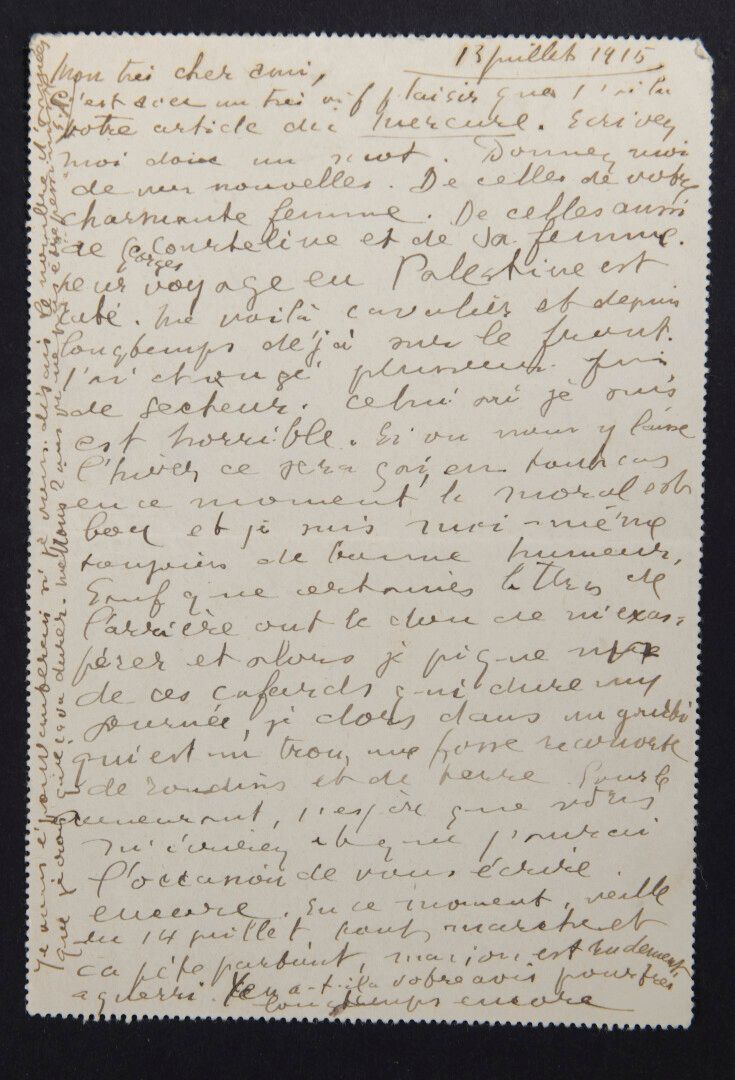 13 juillet 1915
Mon très cher ami,
c'est avec un très vif plaisir que j'ai lu
votre article du Mercure. Ecrivez
moi donc un mot. Donnez moi
de vos nouvelles. De celles de votre
charmante femme. De celles aussi
de Courteline et de sa femme.
Georges
leur voyage en Palestine est
raté. Me voilà cavalier et depuis
longtemps déjà sur le front.
J'ai changé plusieurs fois
de secteur. Celui où je suis
est horrible. Si on nous y laisse
l'hiver ce sera gai, en tous cas
en ce moment, le moral est
bon et je suis moi-même
toujours de bonne humeur,
Sauf que certaines lettres de
l'arrière ont le don de m'exas-
pérer et alors je pique
de ces cafards qui dure une
journée je dors dans un gourbi
qui est un trou, une fosse recouverte
de rondins et de terre. Pour le
demeurant, j'espère que vous
m'écrirez et que j'aurai
l'occasion de vous écrire
encore. En ce moment, veille
du 14 juillet tout marche et
ça pète partout, mais on est rudement
aguerri. Y en a-t-il à votre avis pour très
longtemps encore
Je vous épouvanterais si je vous disais le nombre d'années
que je crois que ça va durer. Mettons 2 ans ou ne pas être pessimiste